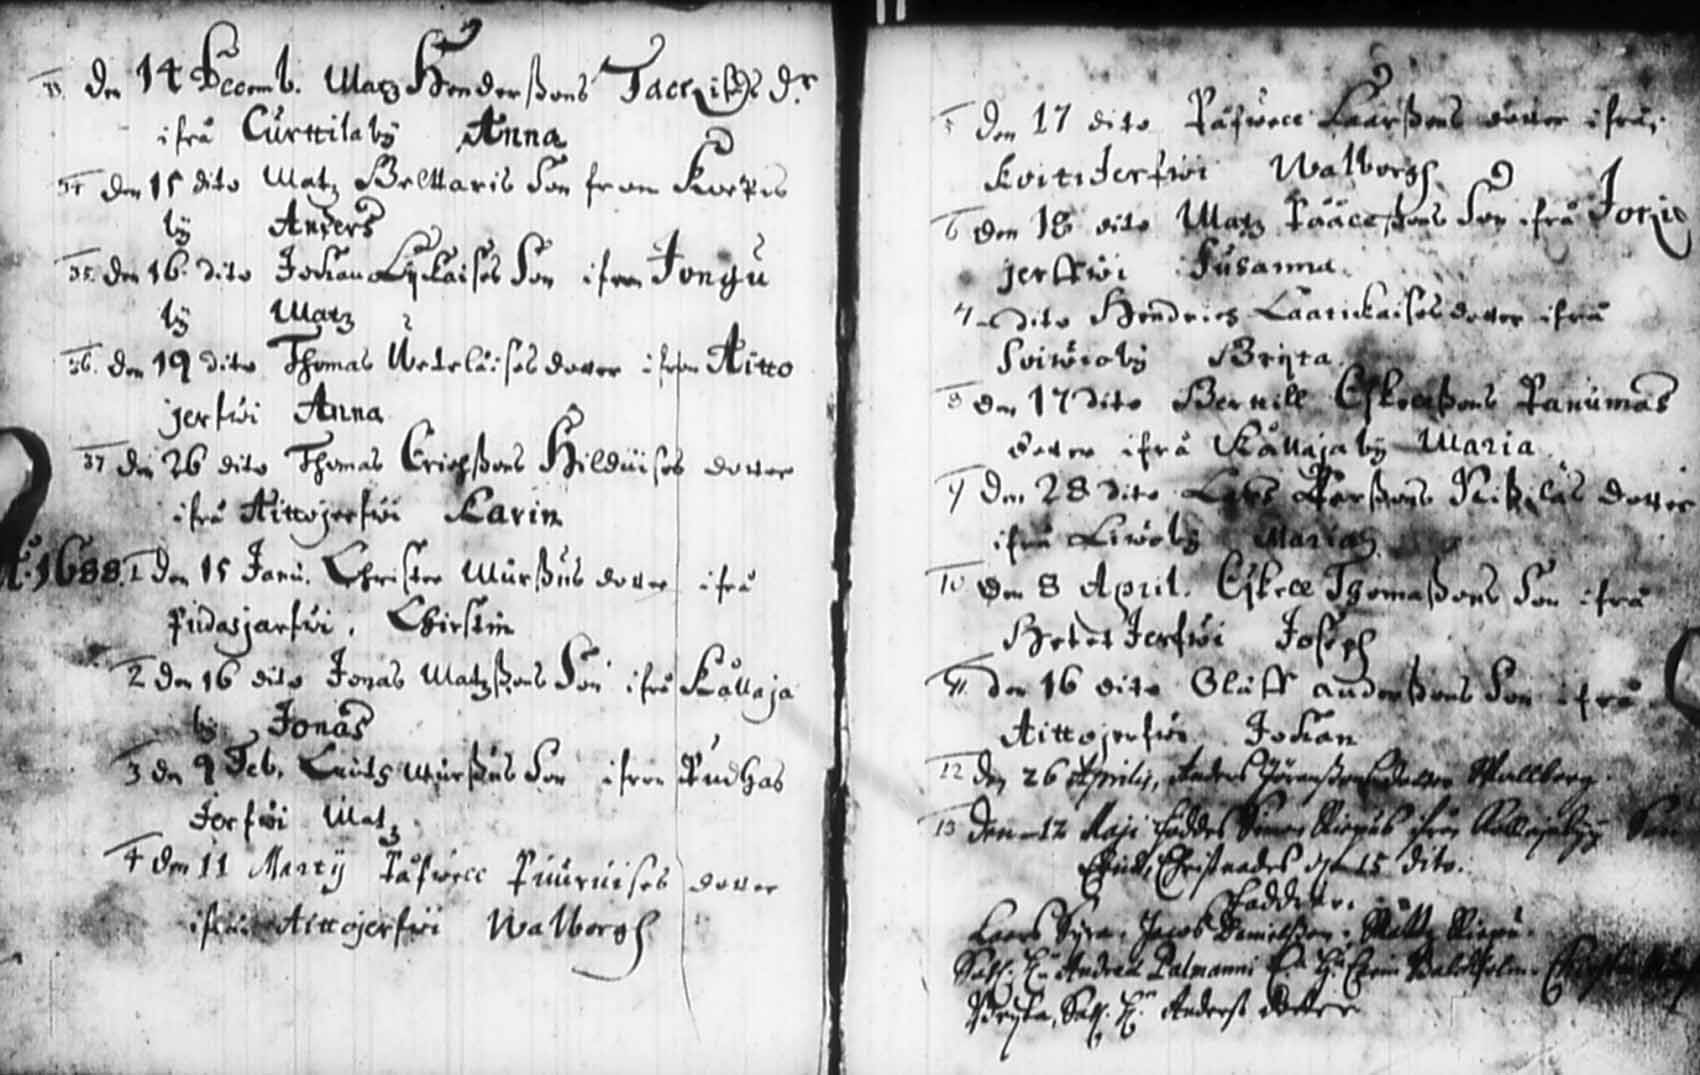 33. den 14 Decemb. Matz Hendersßons Tackisches dr
ifrå Curttilaby Anna
34 den 15 dito Matz Belttaris Son from Korpis
by Anders
35. den 16. dito Johan Lyckaises Son ifron Jongu
by Matz
36. den 19 dito Thomas Weteläises dotter ifron Aitto
jerfwi Anna
37 den 26 dito Thomas Erichßons Hilduises dotter
ifrå Aittojerfwi Karin
A: 1688. 1 den 15 Janu. Christer Murßus dotter ifrå
Pudasjarfwi. Chirstin
2 den 16 dito Jonas Matzßons Son ifrå Kållaja
by Jonas
3 den 9 Feb. Lauts Murßus Son ifron Pudhas
Jerfwi Matz
4 den 11 Marty Påfwell Puuruises dotter
ifrå Aittojerfwi Walborgh
5 den 17 dito Påfwell Laarßons dotter ifrå
Koitijerfwi Walborgh
6 den 18 dito Matz Pååleßons Son ifrå Jongu
jerfwi Susanna
7 dito Hendrich Laarickaises dotter ifrå
Soiwioby Bryta
8 den 17 dito Bertill Eskelßons Panumas
dotter ifrå Kållajaby Maria
9 den 28 dito Lars Parßons Nißiläs dotter
ifrå Liwoby Maria
10 den 8 April. Eskell Thomaßons Son ifrå
Hetet Jerfwi Joseph
11. den 16 dito Oluff anderßons Son ifrå
Aittojerfwi Johan
12 den 26 Aprilis, Anders Göranßons dotter Wallborg.
13 den 12 Maji föddes Simon Riepus ifrån Kållajaby Son
Erich, Christnades den 15 dito.
Faddrar.
Lars Syrn. Jacob Danielßon. Matts Riepu.
Sal. H. Andreæ Palmanni
Bryta, Sal. H. Anders Dotter